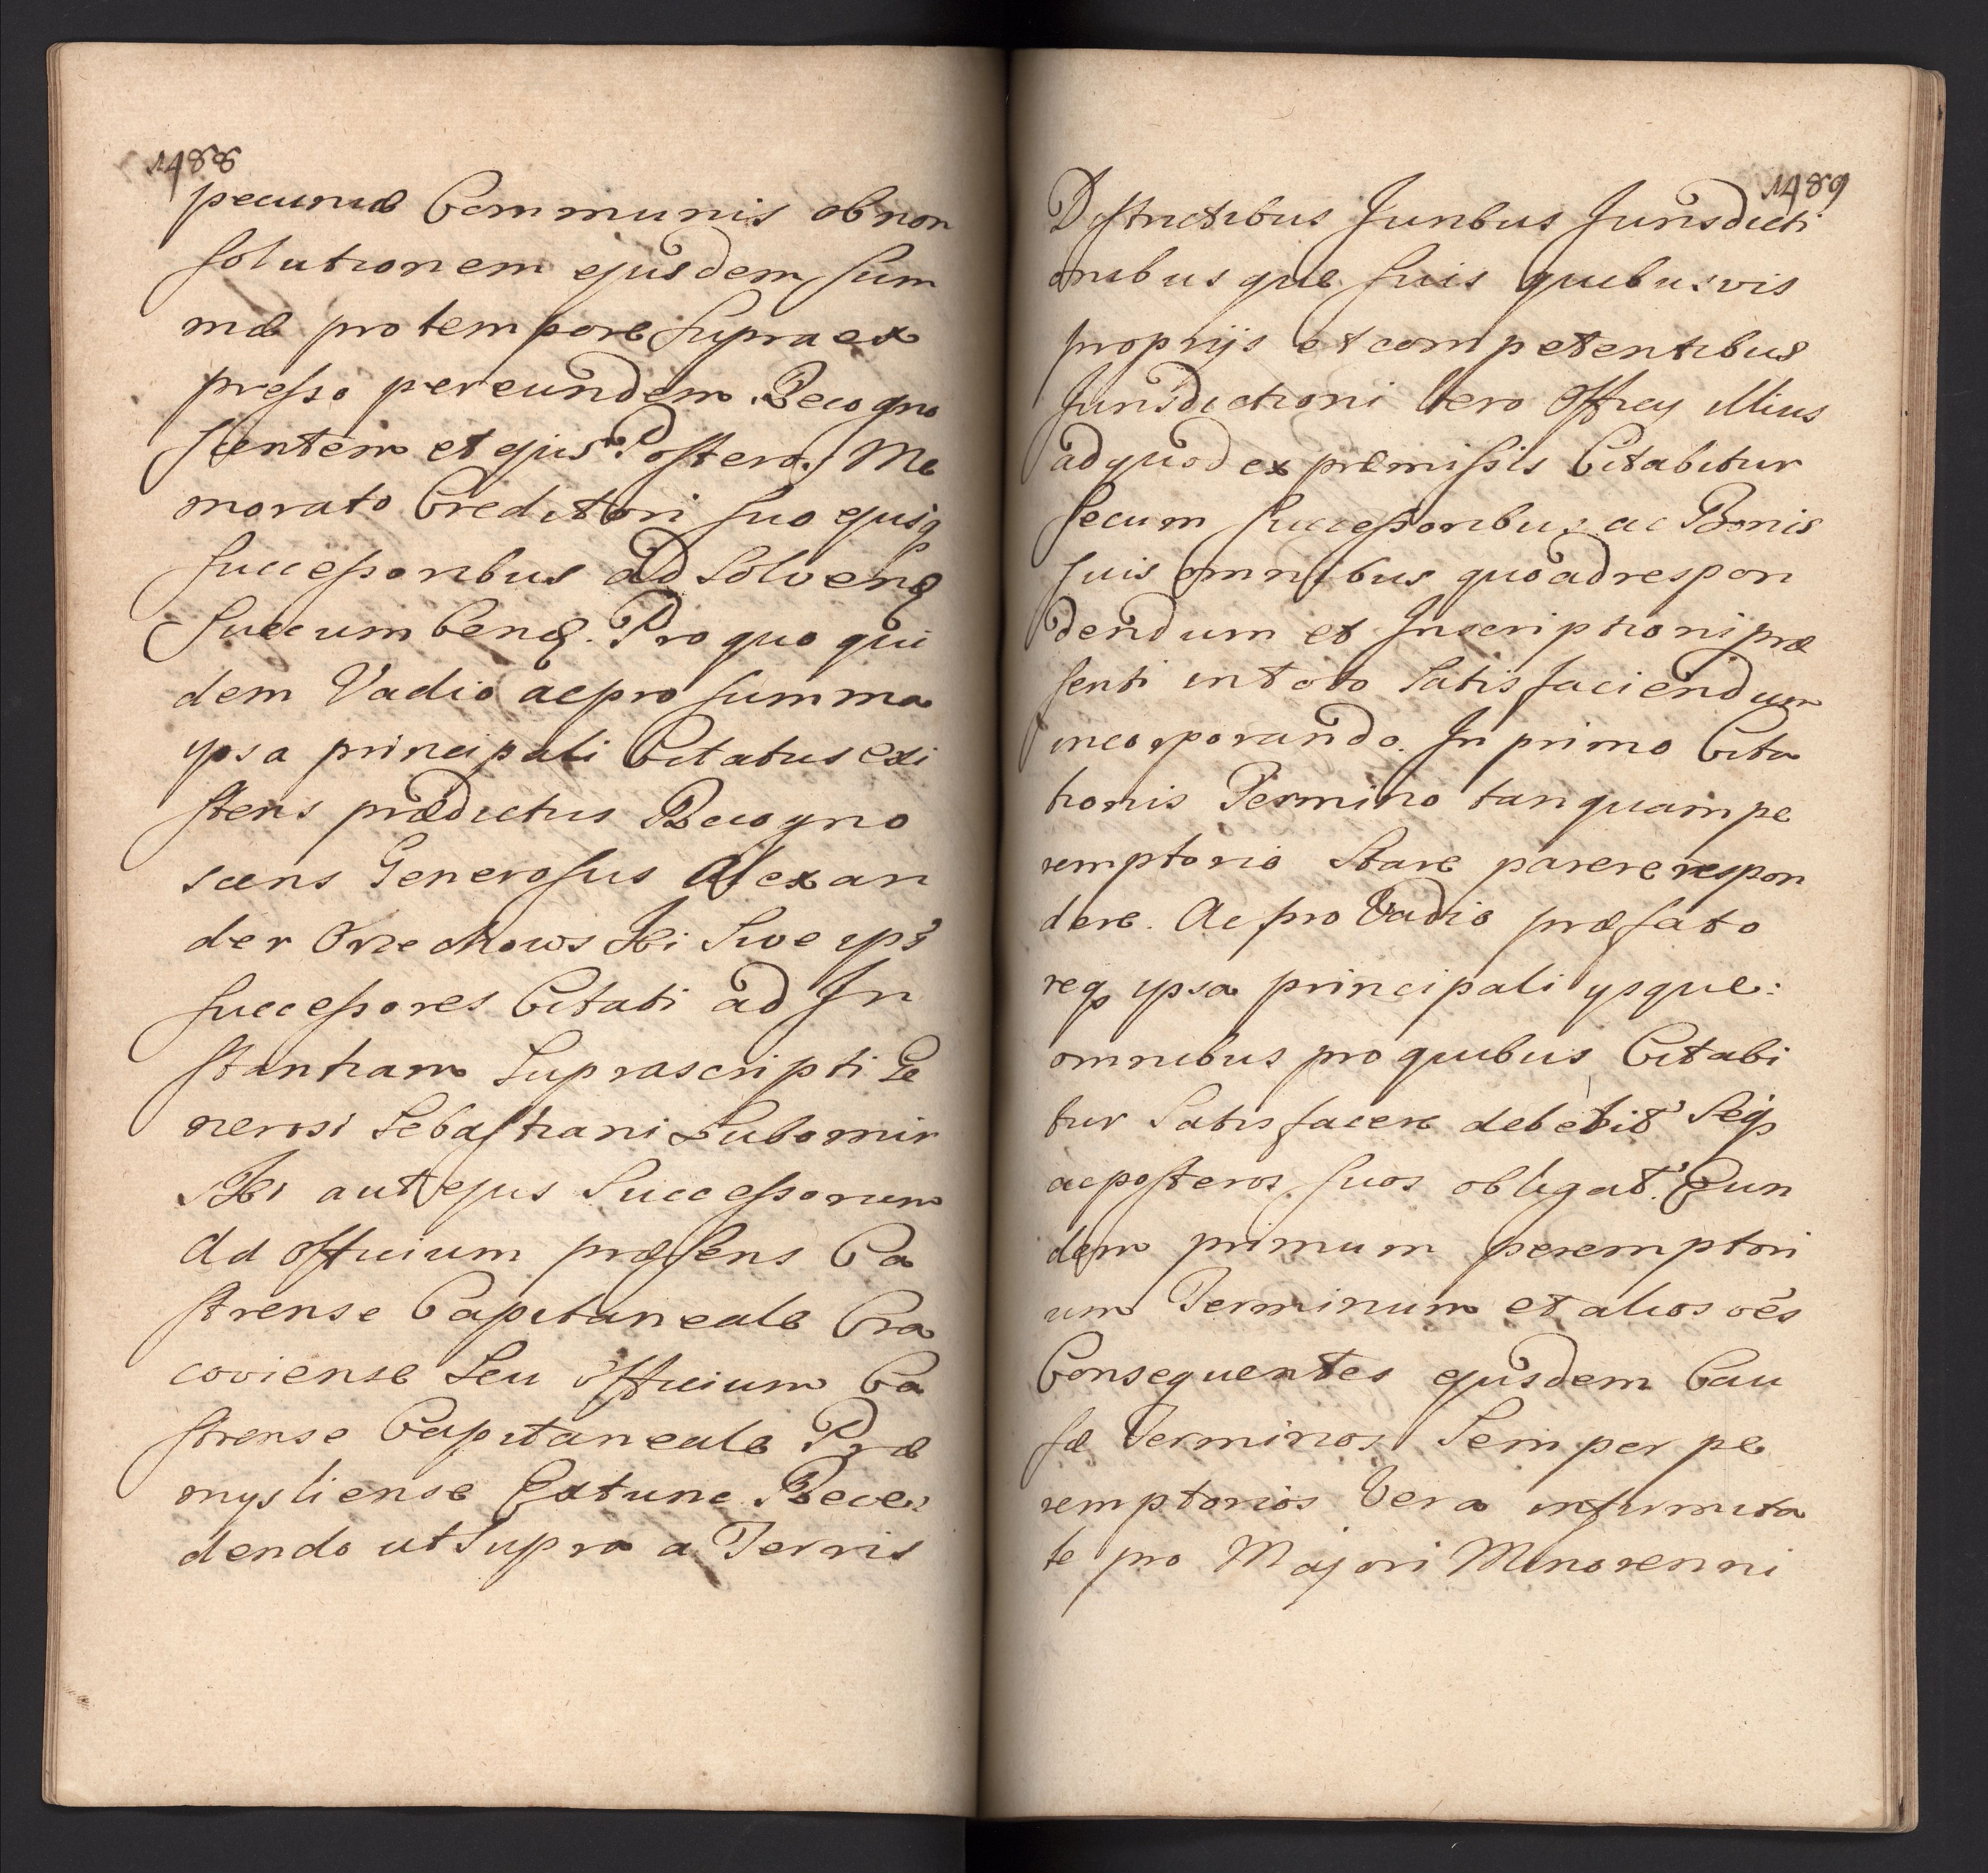 1488
pecuniæ Communis ob non
solutionem ejusdem sum
mæ pro tempore supra ex
presso per eundem Recogno
scentem et ejus Posteros Me
morato Creditori suo ejusq
successoribus ad solvend
succumbend. Pro quo qui
dem Vadio ac pro summa
ypsa principali Citatus exi
stens prædictus Recogno
scens Generosus Alexan
der Orzechowski Sive yps
successores Citati ad In
stantiam Suprascripti Ge
nerosi Sebastiani Lubomir
ski aut ejus Successorum
Ad officium præsens Ca
strense Capitaneale Cra
coviense Seu officium Ca
strense Capitaneale Præ
mysliense Extunc Rece
dendo ut Supra a Terris
1489
Districtibus Juribus Jurisdicti
onibusque suis quibusvis
proprijs et competentibus
Jurisdictioni Vero Officy illius
ad quod ex præmissis Citabitur
secum successoribus ac Bonis
suis omnibus quo ad respon
dendum et Inscriptioni præ
senti in toto Satisfaciendum
incorporando. In primo Cita
tionis Termino tanquam pe
remptorio Stare parere respon
dere. Ac pro Vadio præfato
req ypsa principali ysque:
omnibus pro quibus Citabi
tur Satisfacere debebit Seq
ac posteros suos obligat. Eun
dem primum peremptori
um Terminum et alios oēs
Consequentes ejusdem Cau
sæ Terminos Semper pe
remptorios Vera infirmita
te pro Majori Minorenni